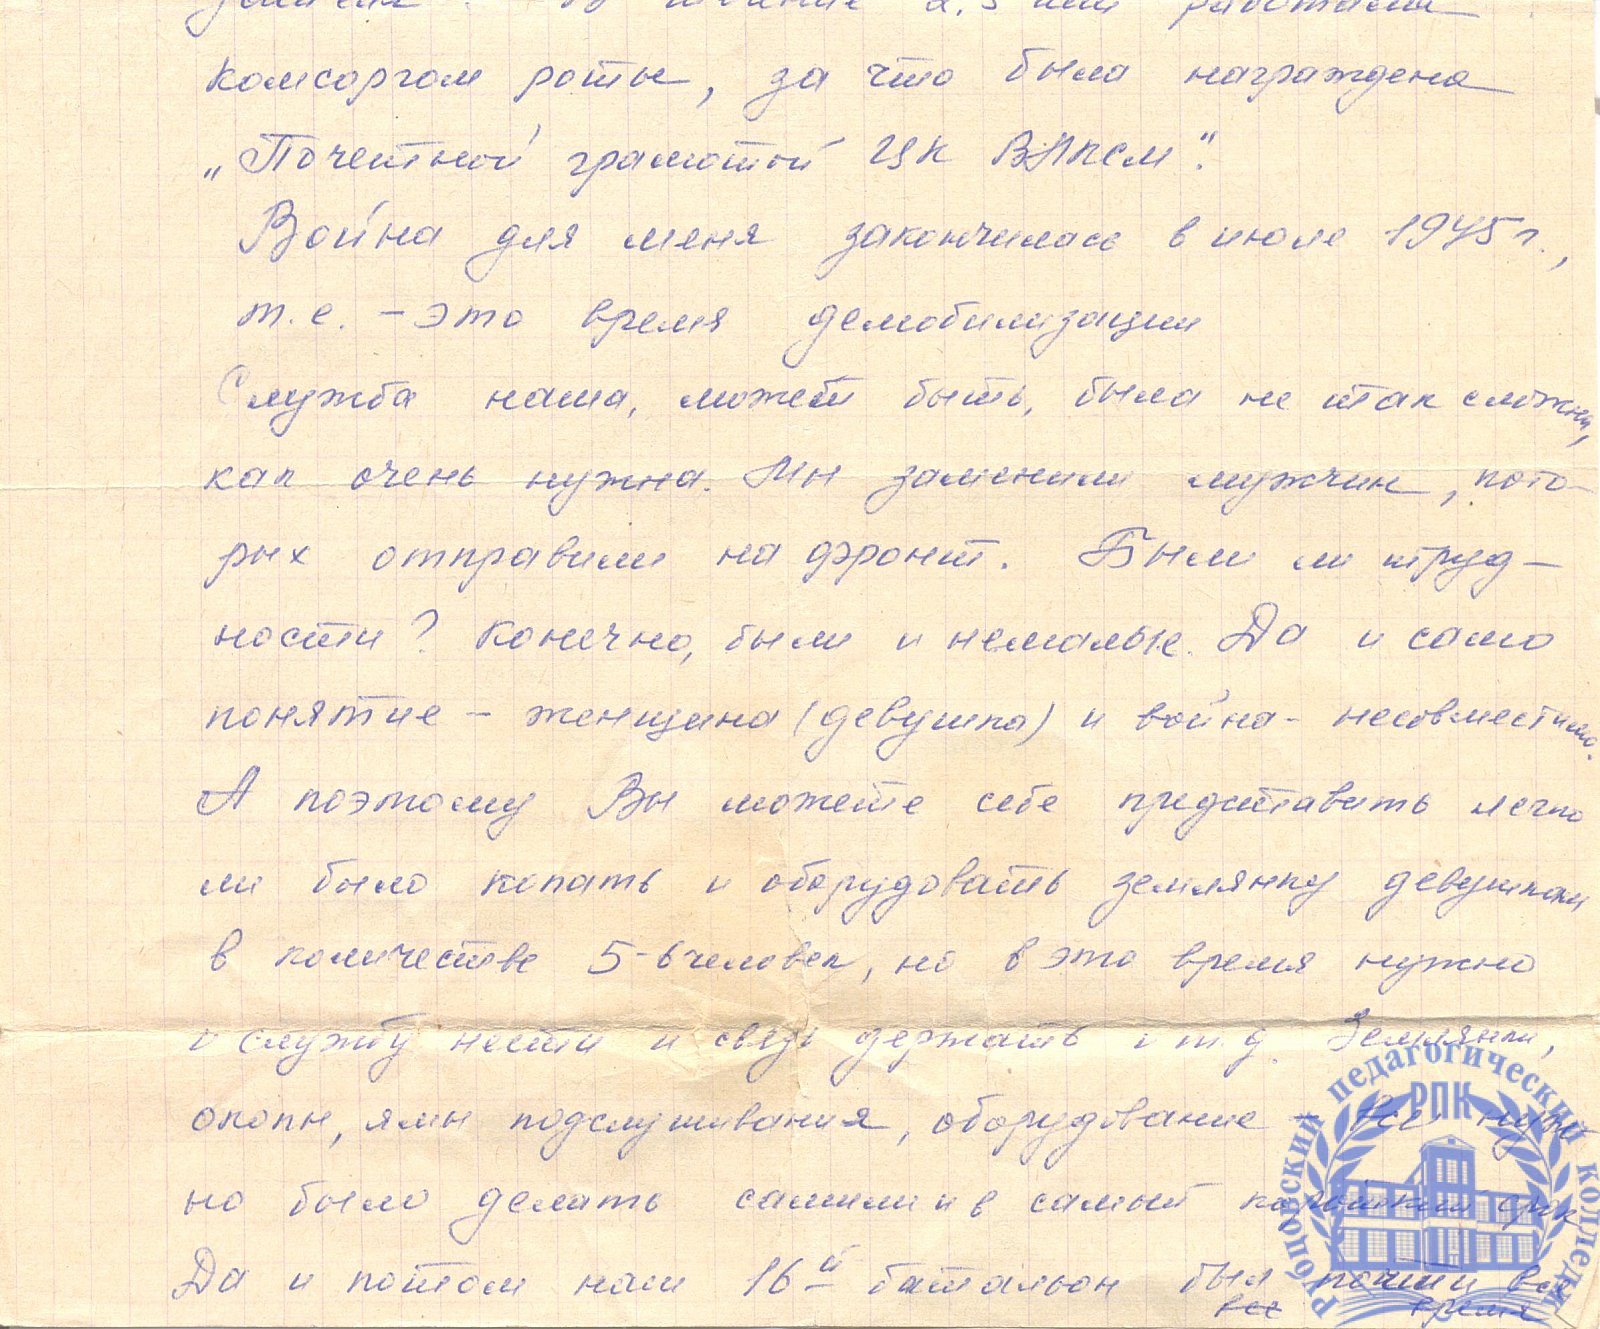 течение 2,5 лет работала
комсоргом роты, за что была награждена
„Почетной грамотой ЦК ВЛКСМ".
Война для меня закончилась в июле 1945 г.,
т.е. – это время демобилизации
Служба наша, может быть, была не так сложна,
как очень нужна. Мы заменили мужчин, кото-
рых отправили на фронт. Были ли труд-
ности? Конечно, были и немалые. Да и само
понятие – женщина (девушка) и война – несовместимо.
А поэтому Вы можете себе представить легко
ли было копать и оборудовать землянку девушкам
в количестве 5-6 человек, но в это время нужно
и службу нести и связь держать и т.д. Землянки,
окопы, ямы подслушивания, оборудование – все нуж-
но было делать самим и в самый короткий срок
Да и потом наш 16й батальон был почти все
все время
Рубцовский педагогический колледж
РПК